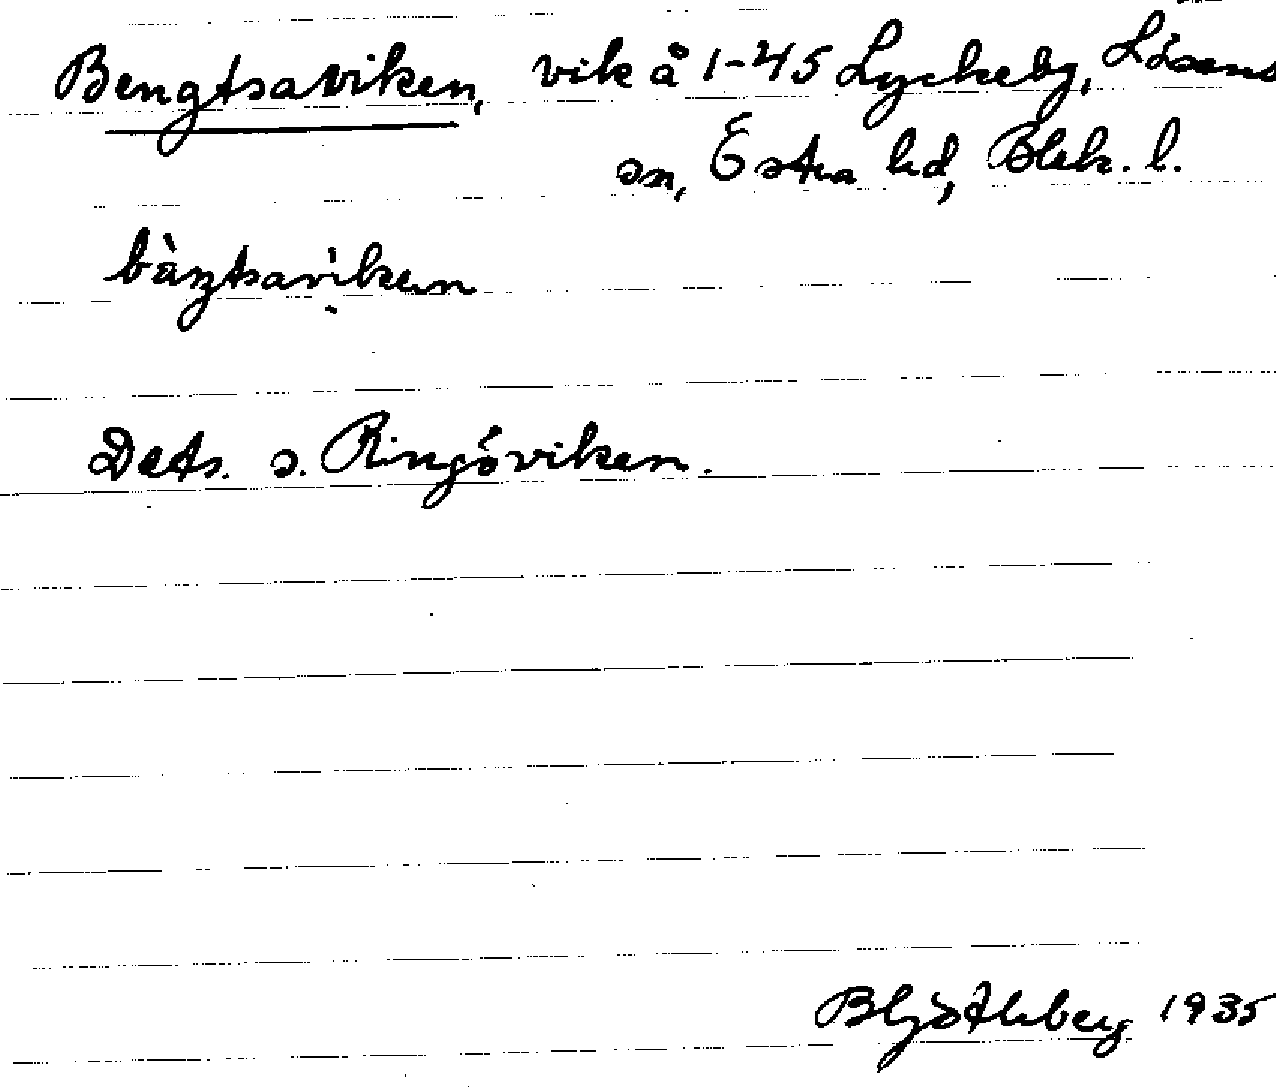 Bengtsaviken, vik å 1-45 Lyckeby, Lösens
sn, Östra hd, Blek. l.
bàŋtsavikən
Dets. s. Ringöviken.
1935